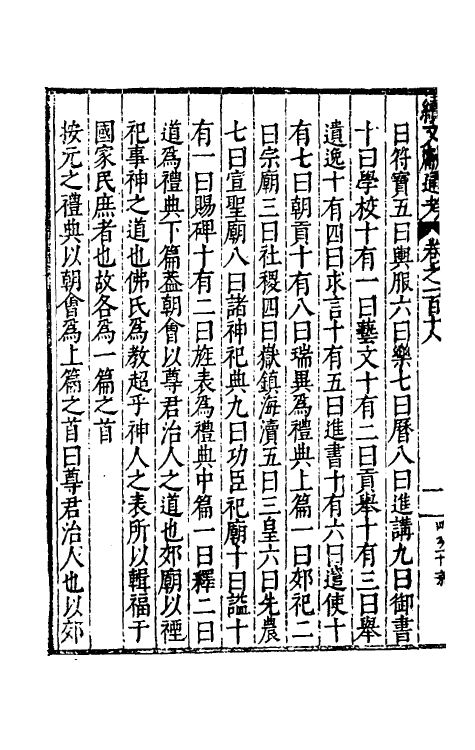 續文獻通考 卷之一百十六
曰符寶五曰輿服六曰樂七曰曆八曰進講九曰御書
十曰學校十有一曰藝文十有二曰貢舉十有三曰舉
遺逸十有四曰求言十有五曰進書十有六曰遣使十
有七曰朝貢十有八曰瑞異爲禮典上篇一曰郊祀二
曰宗廟三曰社稷四曰嶽鎮海瀆五曰三皇六曰先農
七曰宣聖廟八曰諸神祀典九曰功臣祀廟十曰謚十
有一曰賜碑十有二曰旌表爲禮典中篇一曰釋二曰
道爲禮典下篇葢朝會以尊君治人之道也郊廟以禋
祀事神之道也佛氏爲教超乎神人之表所以輯福于
國家民庶者也故各爲一篇之首
按元之禮典以朝會爲上篇之首曰尊君治人也以郊